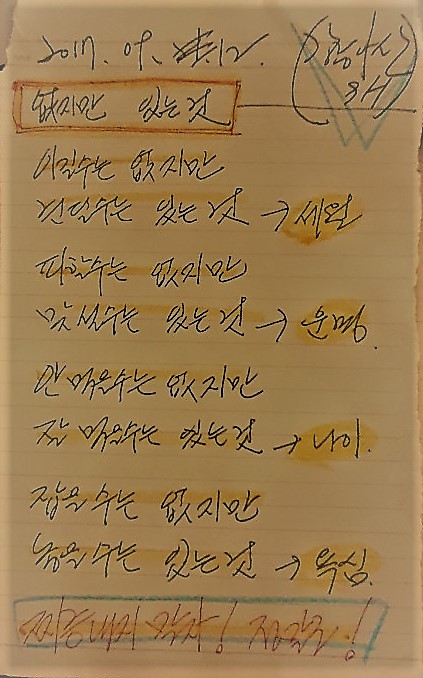 2017. 09. 12.
없지만 있는 것
이길수는 없지만
견딜수는 있는 것 → 세월
피할수는 없지만
맞설수는 있는 것 → 운명.
안 먹을수는 없지만
잘 먹을수는 있는 것 → 나이.
잡을 수는 없지만
놓을 수는 있는 것 → 욕심.
짜증내지 말자!